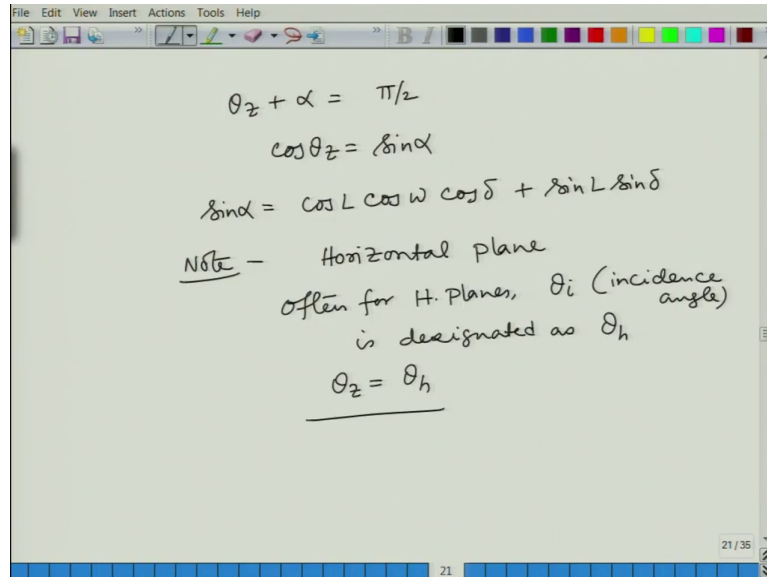 File Edit View Insert Actions Tools Help
θz + α = π/2
cosθz = sinα
sinα = cos L cos w cos δ + sin L sin δ
Note - Horizontal plane
often for H. Planes, θi (incidence angle)
is designated as θh
θz = θh
21/35
21